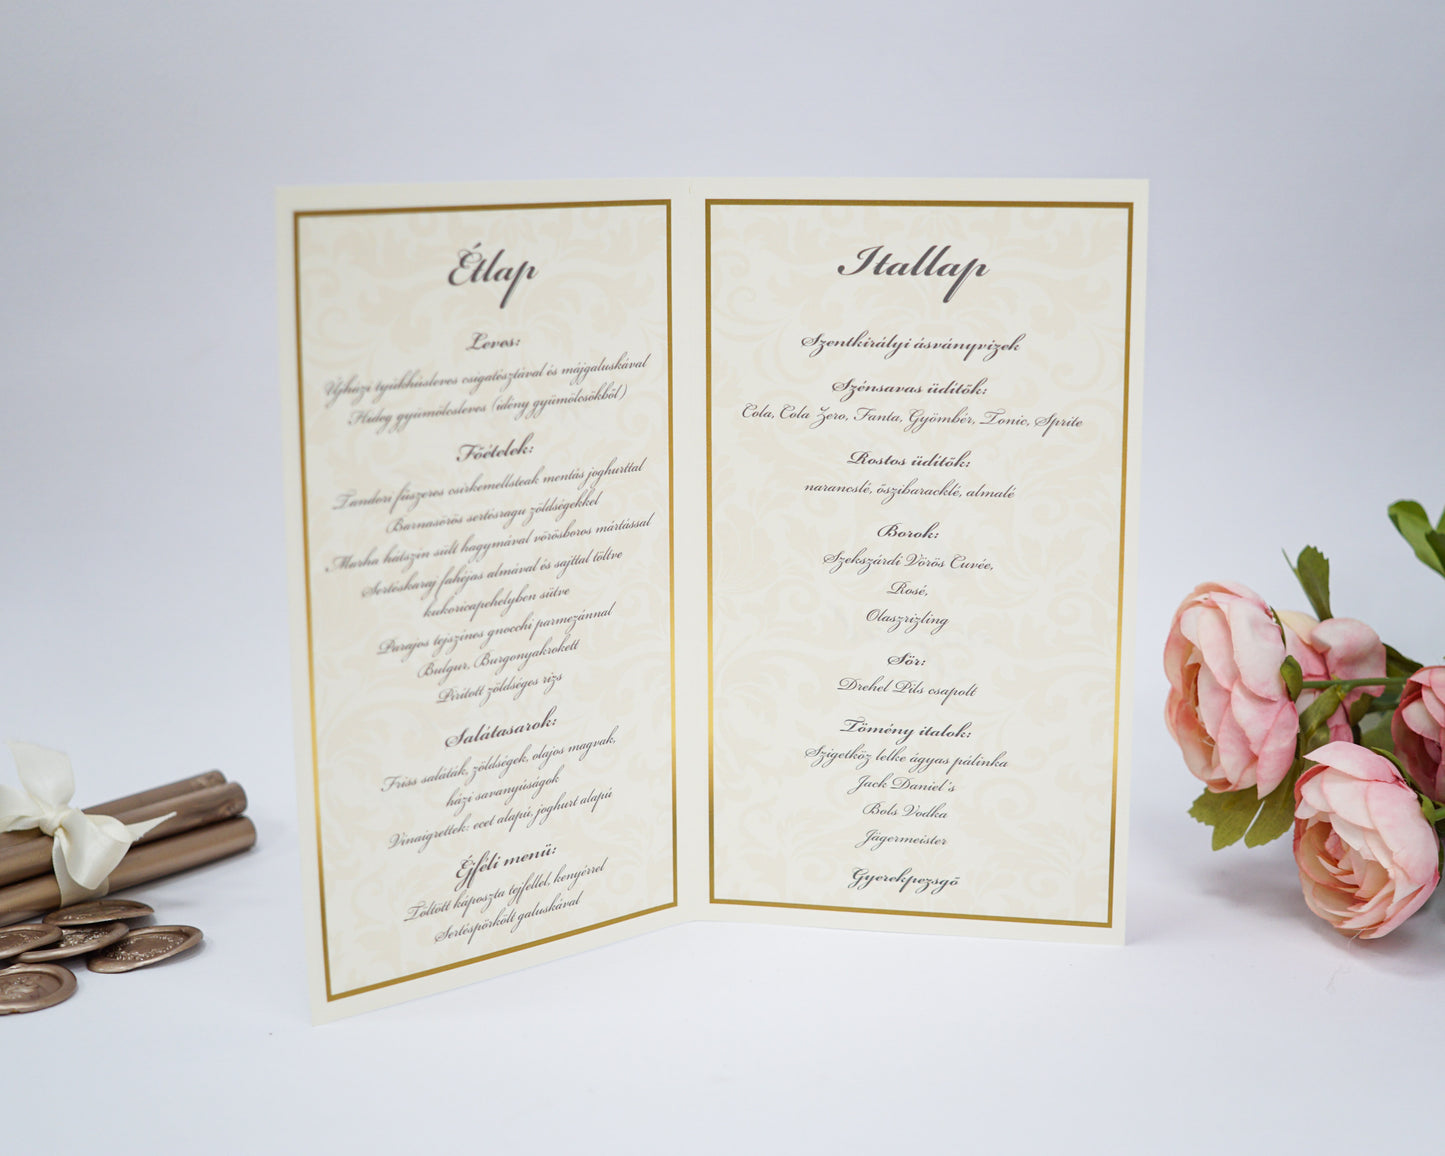 Étlap
Leves:
Újházi tyúkhúsleves csigatésztával és májgaluskával
Hideg gyümölcsleves (idény gyümölcsökből)
Főételek:
Tandori fűszeres csirkemellsteak mentás joghurttal
Barnasörös sertésragu zöldségekkel
Marha hátszín sült hagymával vörösboros mártással
Sertéskaraj fahéjas almával és sajttal töltve
kukoricapehelyben sütve
Parajos tejszínes gnocchi parmezánnal
Bulgur, Burgonyakrokett
Pirított zöldséges rizs
Salátasarok:
Friss saláták, zöldségek, olajos magvak,
házi savanyúságok
Vinaigrettek: ecet alapú, joghurt alapú
Éjféli menü:
Töltött káposzta tejfellel, kenyérrel
Sertéspörkölt galuskával
Itallap
Szentkirályi ásványvizek
Szénsavas üdítők:
Cola, Cola Zero, Fanta, Gyömbér, Tonic, Sprite
Rostos üdítők:
narancslé, őszibaracklé, almalé
Borok:
Szekszárdi Vörös Cuvée,
Rosé,
Olaszrizling
Sör:
Drehel Pils csapolt
Tömény italok:
Szigetköz lelke ágyas pálinka
Jack Daniel's
Bols Vodka
Jägermeister
Gyerekpezsgő